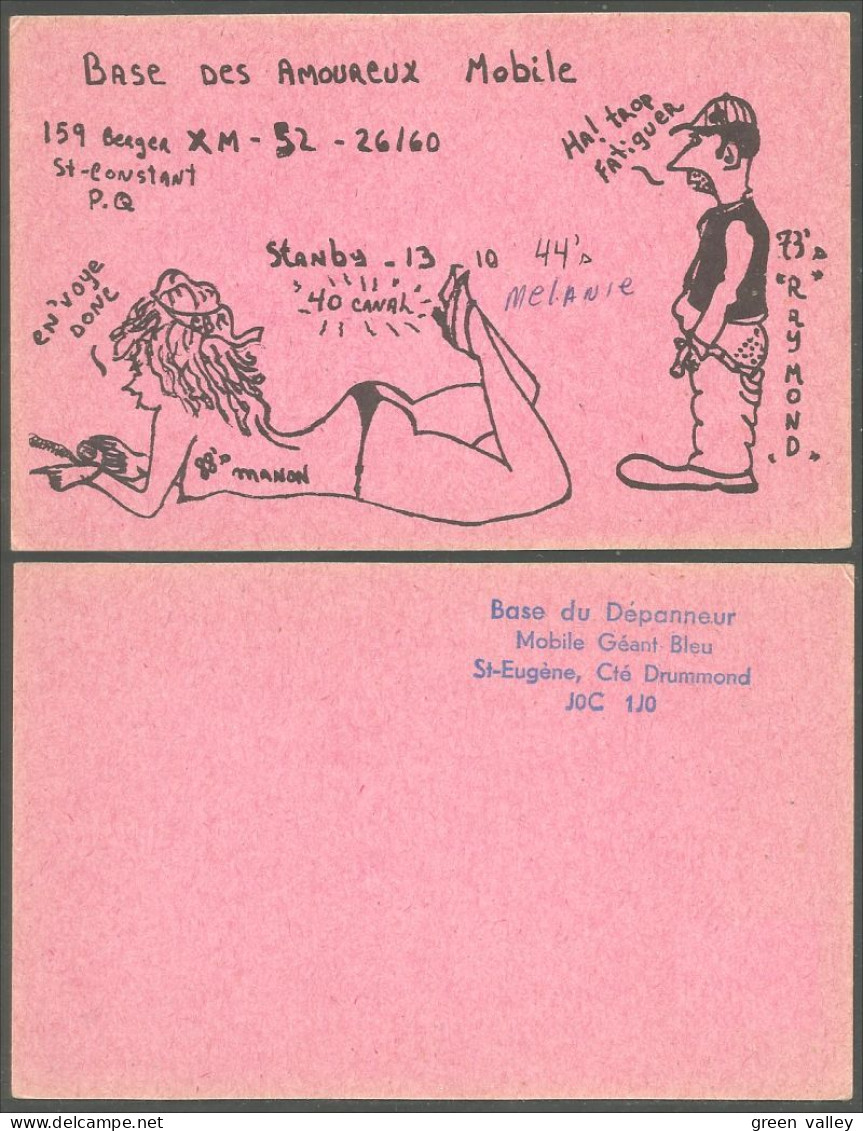 BASE DES AMOUREUX MOBILE
159 Berger XM - 52 - 26/60
St-Constant
P.Q
Ha! trop
Fatiguer
Stanby - 13 - 10 44's
40 CANAL MELANIE
en'voye
DONC
73's
"RAYMOND"
88's MANON
Base du Dépanneur
Mobile Géant Bleu
St-Eugène, Cté Drummond
J0C 1J0
green valley